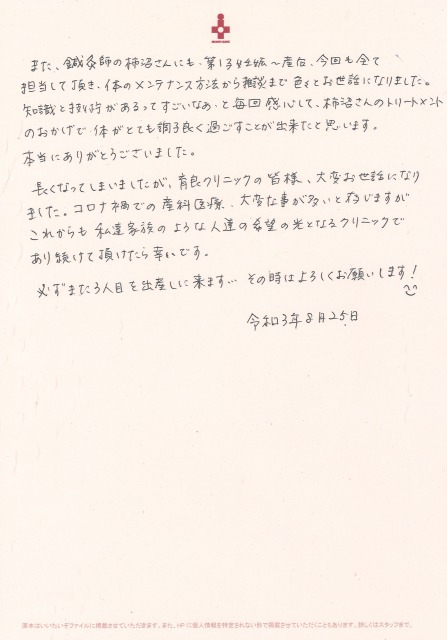 また、鍼灸師の柿沼さんにも、第1子妊娠〜産后、今回も全て
担当して頂き、体のメンテナンス方法から雑談まで色々とお世話になりました。
知識と技術があるってすごいなぁ、と毎回感心して、柿沼さんのトリートメント
のおかげで体がとても調子良く過ごすことが出来たと思います。
本当にありがとうございました。
長くなってしまいましたが、育良クリニックの皆様、大変お世話になり
ました。コロナ禍での産科医療、大変な事が多いと存じますが
これからも私達家族のような人達の希望の光となるクリニックで
あり続けて頂けたら幸いです。
必ずまた3人目を出産しに来ます… その時はよろしくお願いします!
令和3年8月25日
原本はいいたいぞファイルに掲載させていただきます。また、HPに個人情報を特定されない形で掲載させていただくこともあります。詳しくはスタッフまで。